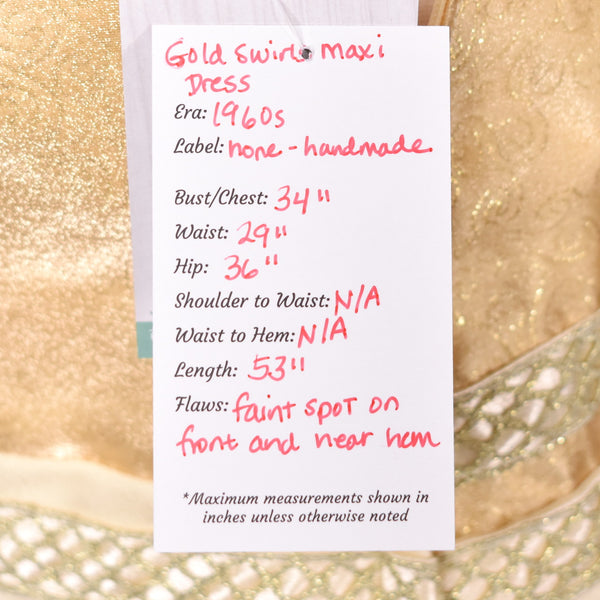 Gold Swirl Maxi
Dress
Era: 1960s
Label: none - handmade.
Bust/Chest: 34"
Waist: 29"
Hip: 36"
Shoulder to Waist: N/A
Waist to Hem: N/A
Length: 53"
Flaws: faint spot on
front and near hem
*Maximum measurements shown in
inches unless otherwise noted